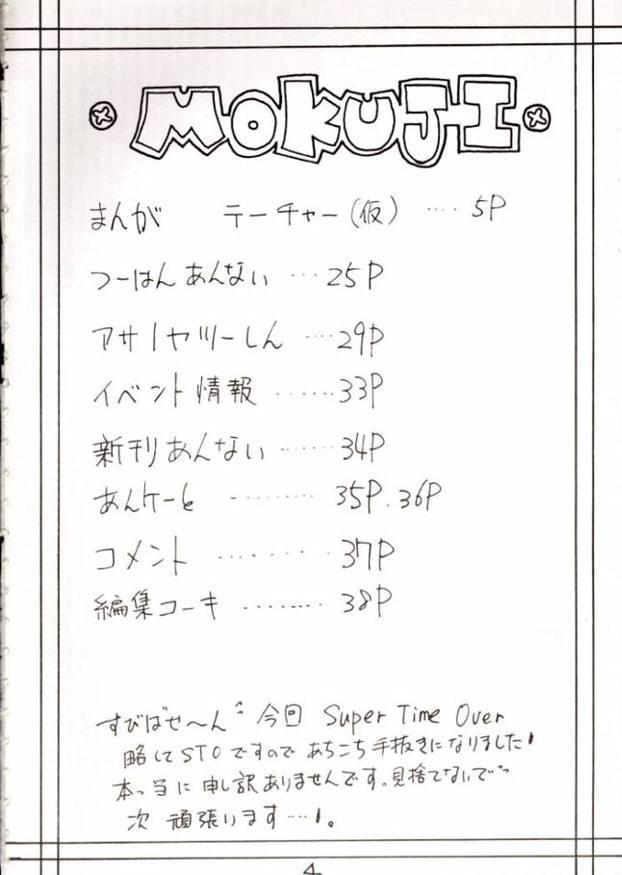 MOKUJI
まんが　テーチャー(仮) ‥‥ 5P
つーはんあんない ‥‥ 25P
アサノヤツーしん ‥‥ 29P
イベント情報 ‥‥‥ 33P
新刊あんない ‥‥‥ 34P
あんケーと ‥‥‥‥ 35P.36P
コメント ‥‥‥‥ 37P
編集コーキ ‥‥‥‥ 38P
すびばせ〜ん 今回 Super Time Over
略してSTOですので あちこち手抜きになりました!
本っ当に申し訳ありませんです。見捨てないで〜
次 頑張います…!。
4